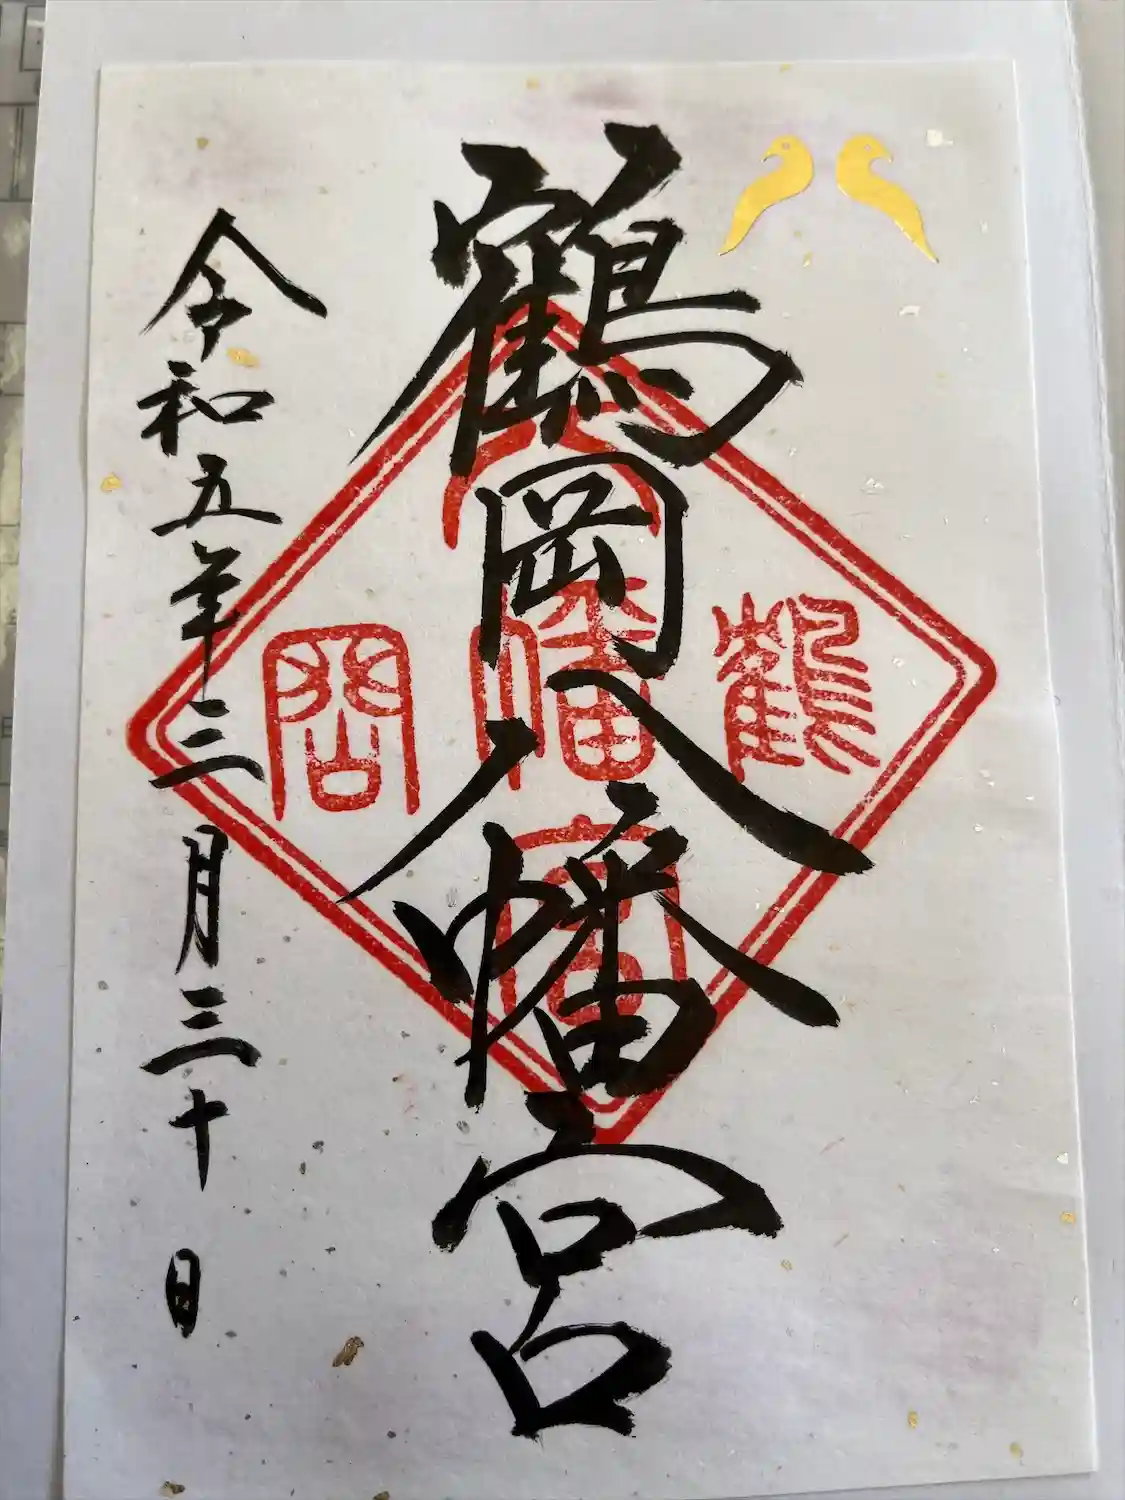 鶴岡八幡宮
令和五年三月三十日
鶴
岡
八
幡
宮